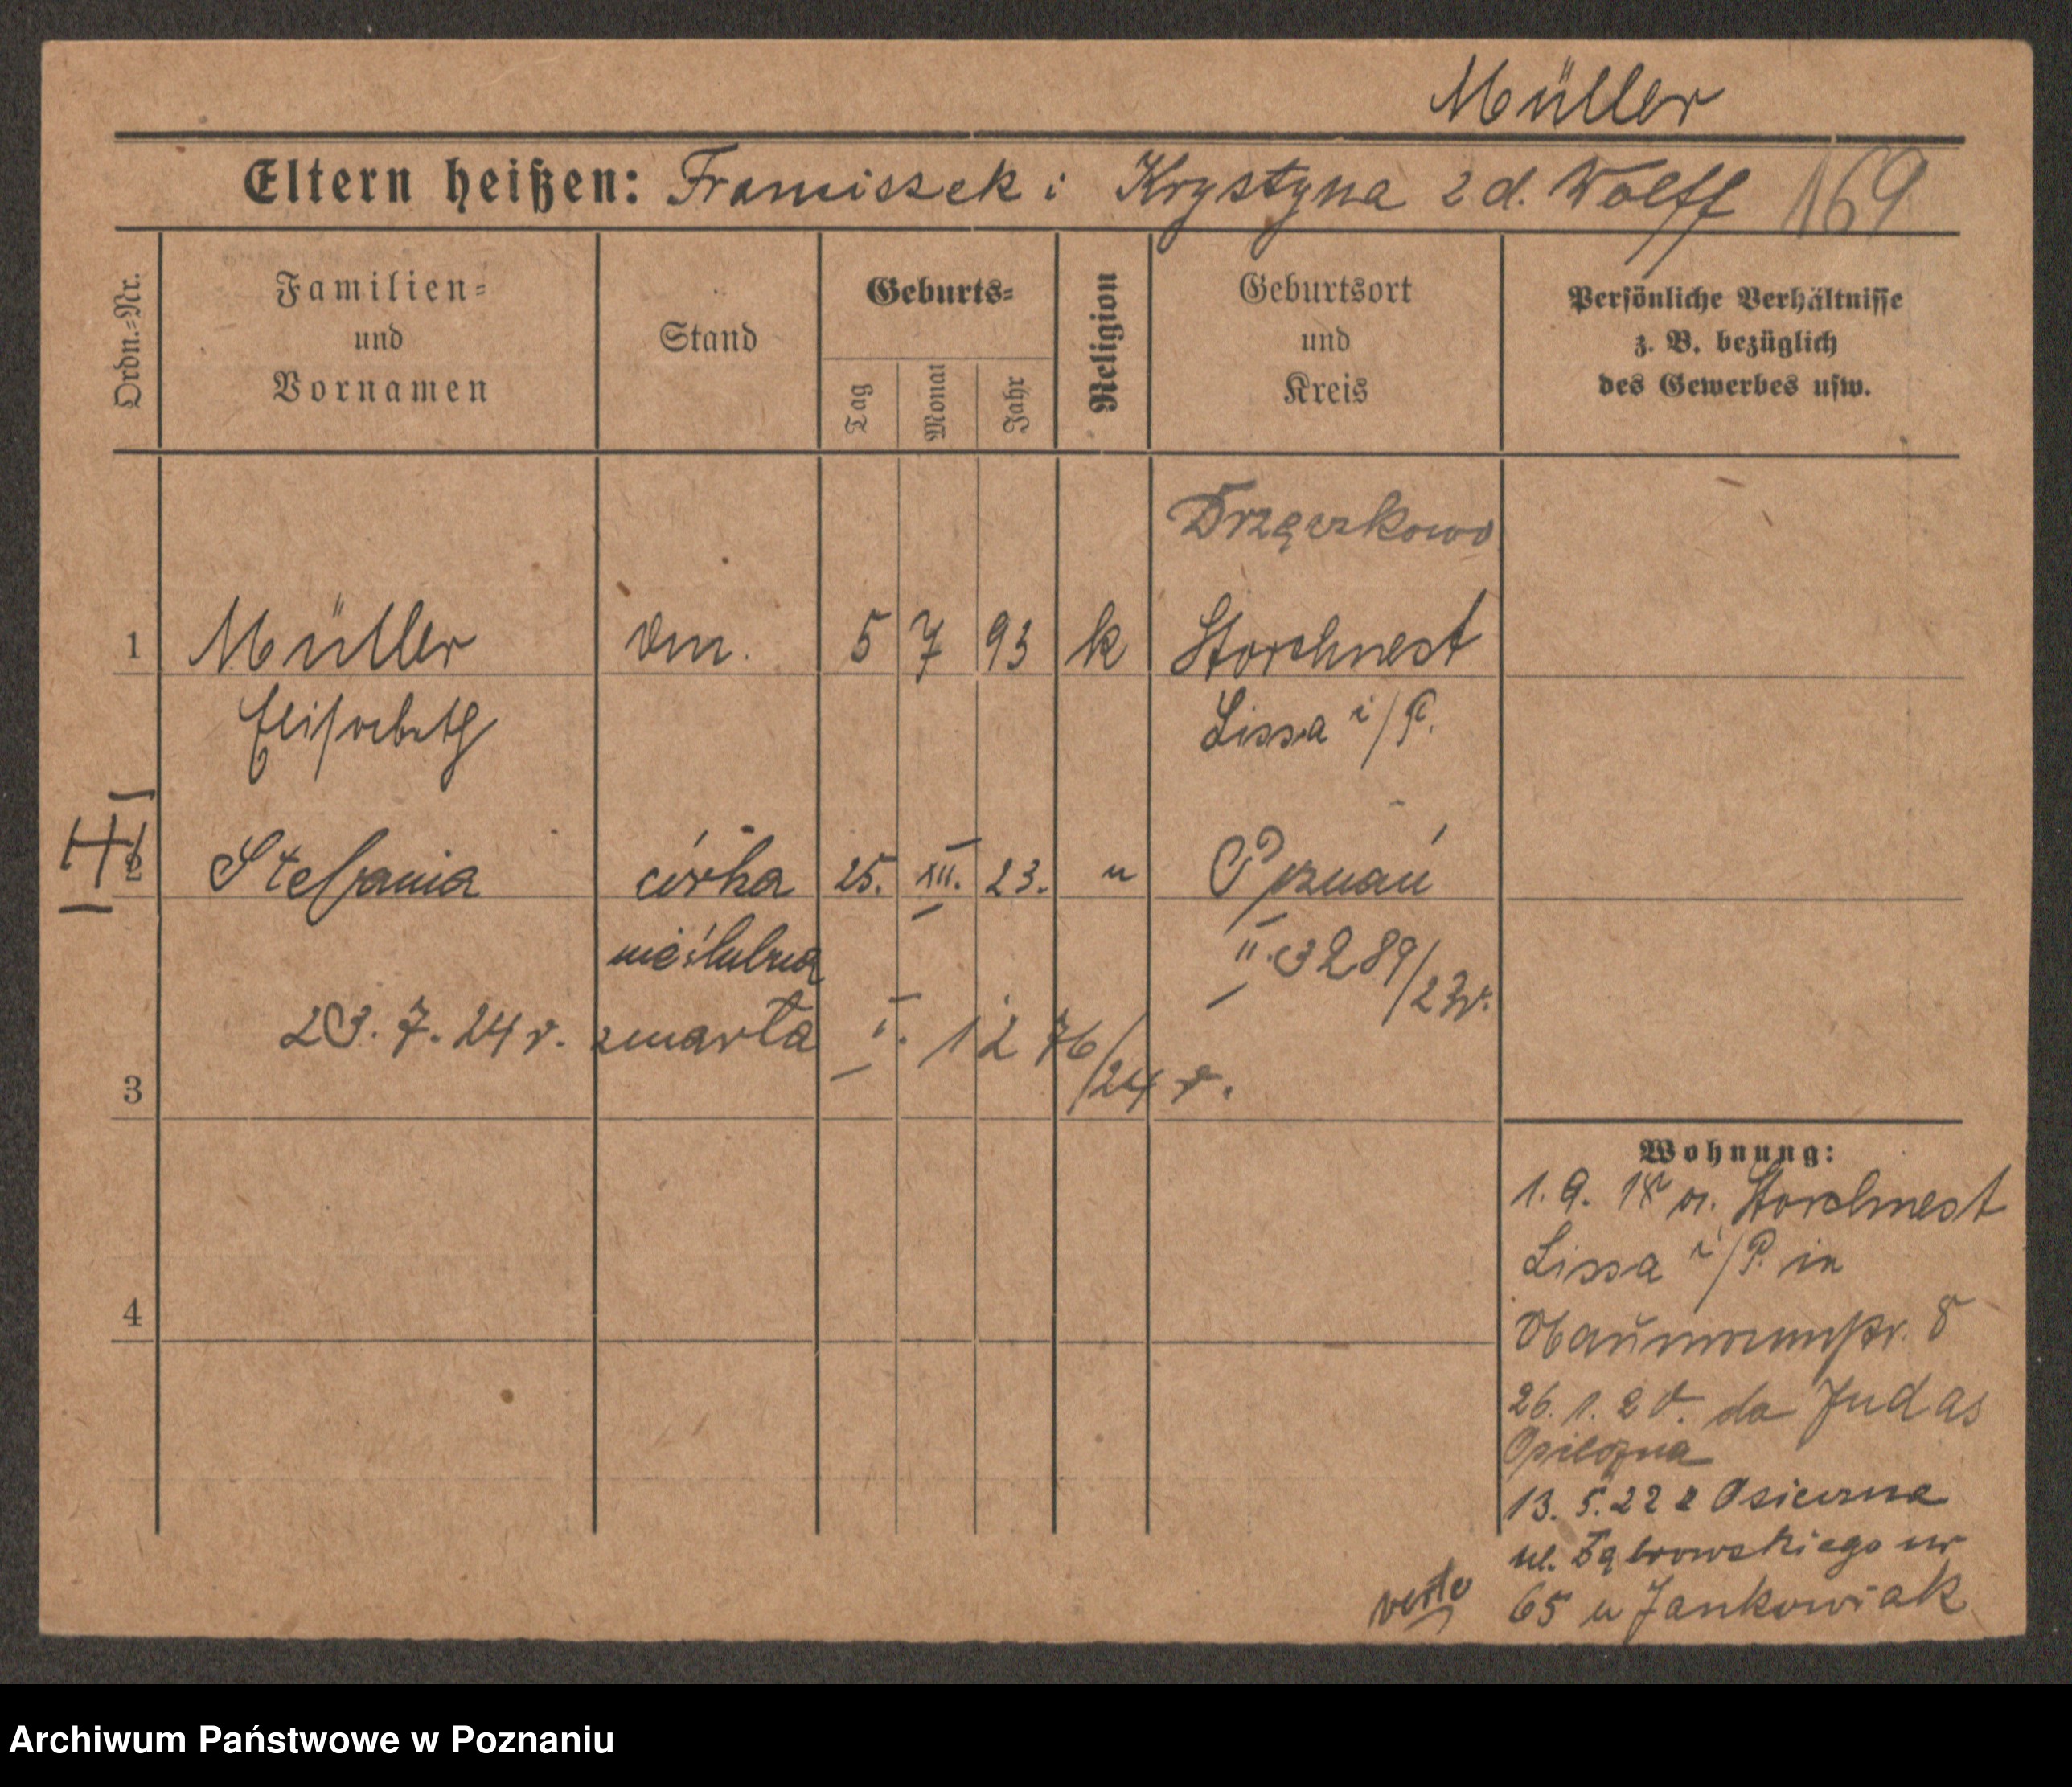 Müller
Eltern heißen: Franciszek i Krystyna z d. Wolff 169
Ordn.=Nr.
Familien=
und
Vornamen
Stand
Geburts=
Tag
Monat
Jahr
Religion
Geburtsort
und
Kreis
Persönliche Verhältnisse
z. B. bezüglich
des Gewerbes usw.
Drzęczkowo
1 Müller 5 7 93 k Storchnest
Elisabeth Lissa i/P.
2 Stefania córka 25. XII. 23. " Poznań
nieślubna II. 3289/23r.
23. 7. 24 r. zmarła I. 1276/24 r.
3
Wohnung:
1. 9. 18 Storchnest
Lissa i/P. in
8
4
26. 1. 20. do
13. 5. 22 z Osieczna
ul. Dąbrowskiego nr
verte 65 u Jankowiak
Archiwum Państwowe w Poznaniu